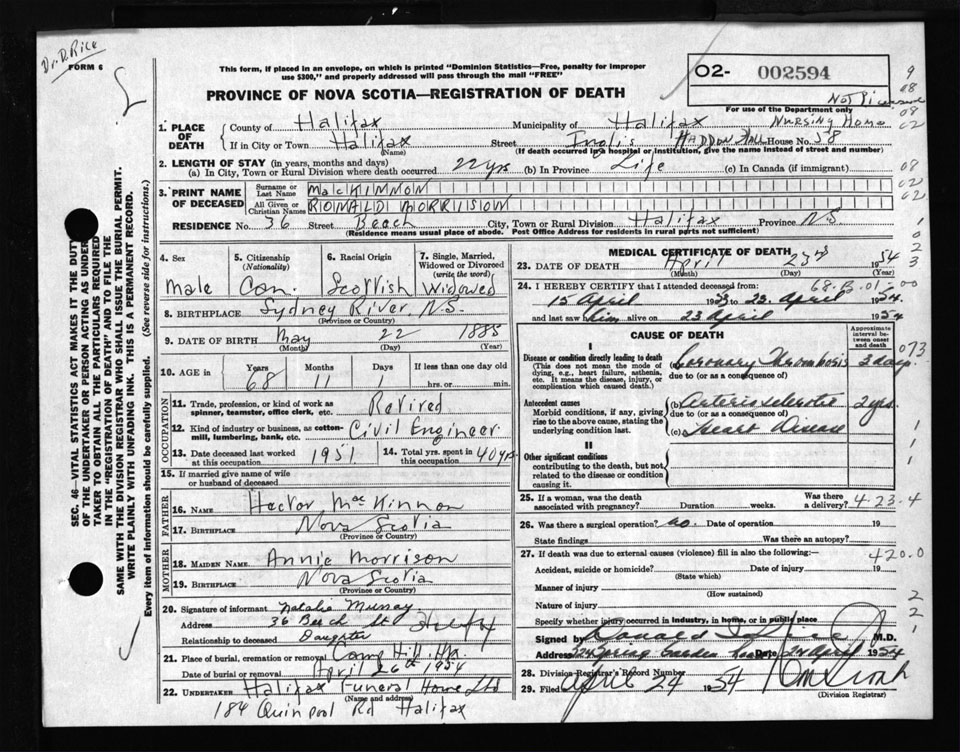 Dr. D. Rice
FORM 6
This form, if placed in an envelope, on which is printed "Dominion Statistics—Free, penalty for improper
use $300," and properly addressed will pass through the mail "FREE"
PROVINCE OF NOVA SCOTIA—REGISTRATION OF DEATH
02- 002594
Not Licensed
For use of the Department only
Nursing Home
1. PLACE OF DEATH { County of Halifax Municipality of Halifax
If in City or Town Halifax (Name) Street Inglis Haddon Hall House No. 58
(If death occurred in a hospital or institution, give the name instead of street and number)
2. LENGTH OF STAY (in years, months and days)
(a) In City, Town or Rural Division where death occurred 22 yrs (b) In Province Life (c) In Canada (if immigrant)
3. PRINT NAME OF DECEASED { Surname or Last Name MacKINNON
All Given or Christian Names RONALD MORRISON
RESIDENCE No. 36 Street Beech City, Town or Rural Division Halifax Province N.S.
(Residence means usual place of abode. Post Office Address for residents in rural parts not sufficient)
4. Sex Male
5. Citizenship (Nationality) Can.
6. Racial Origin Scottish
7. Single, Married, Widowed or Divorced (write the word) Widowed
8. BIRTHPLACE Sydney River, N.S.
(Province or Country)
9. DATE OF BIRTH May 22 1885
(Month) (Day) (Year)
10. AGE in Years 68 Months 11 Days 1 If less than one day old hrs. or min.
OCCUPATION
11. Trade, profession, or kind of work as spinner, teamster, office clerk, etc. Retired
12. Kind of industry or business, as cotton-mill, lumbering, bank, etc. Civil Engineer
13. Date deceased last worked at this occupation 1951 14. Total yrs. spent in this occupation 40 yrs
15. If married give name of wife or husband of deceased
FATHER
16. NAME Hector MacKinnon
17. BIRTHPLACE Nova Scotia
(Province or Country)
MOTHER
18. MAIDEN NAME Annie Morrison
19. BIRTHPLACE Nova Scotia
(Province or Country)
20. Signature of informant Natalie Murray
Address 36 Beech St
Relationship to deceased Daughter
21. Place of burial, cremation or removal Camp Hill, Hfx.
Date of burial or removal April 26th 1954
22. UNDERTAKER Halifax Funeral Home Ltd
(Name and address)
184 Quinpool Rd Halifax
MEDICAL CERTIFICATE OF DEATH
23. DATE OF DEATH April 23rd 1954
(Month) (Day) (Year)
24. I HEREBY CERTIFY that I attended deceased from
15 April 1953 to 23 April 1954
and last saw him alive on 23 April 1954
CAUSE OF DEATH
Approximate interval between onset and death
I
Disease or condition directly leading to death
(This does not mean the mode of dying, e.g., heart failure, asthenia, etc. It means the disease, injury, or complication which caused death.)
(a) Coronary Thrombosis 3 days
due to (or as a consequence of)
Antecedent causes
Morbid conditions, if any, giving rise to the above cause, stating the underlying condition last.
(b) Arteriosclerotic 2 yrs
due to (or as a consequence of)
(c) Heart Disease
II
Other significant conditions
contributing to the death, but not related to the disease or condition causing it.
25. If a woman, was the death associated with pregnancy? Duration weeks. Was there a delivery? 4-23-4
26. Was there a surgical operation? no. Date of operation 19
State findings Was there an autopsy?
27. If death was due to external causes (violence) fill in also the following:— 420.0
Accident, suicide or homicide? Date of injury 19
(State which)
Manner of injury
(How sustained)
Nature of injury
Specify whether injury occurred in industry, in home, or in public place
Signed by Donald Rice M.D.
Address 224 Spring Garden Road Date 24 April 1954
28. Division Registrar's Record Number
29. Filed April 24 1954
(Division Registrar)
SEC. 46—VITAL STATISTICS ACT MAKES IT THE DUTY
OF THE UNDERTAKER OR PERSON ACTING AS UNDER-
TAKER TO OBTAIN ALL THE PARTICULARS REQUIRED
IN THE "REGISTRATION OF DEATH" AND TO FILE THE
SAME WITH THE DIVISION REGISTRAR WHO SHALL ISSUE THE BURIAL PERMIT.
WRITE PLAINLY WITH UNFADING INK. THIS IS A PERMANENT RECORD.
Every item of information should be carefully supplied. (See reverse side for instructions.)